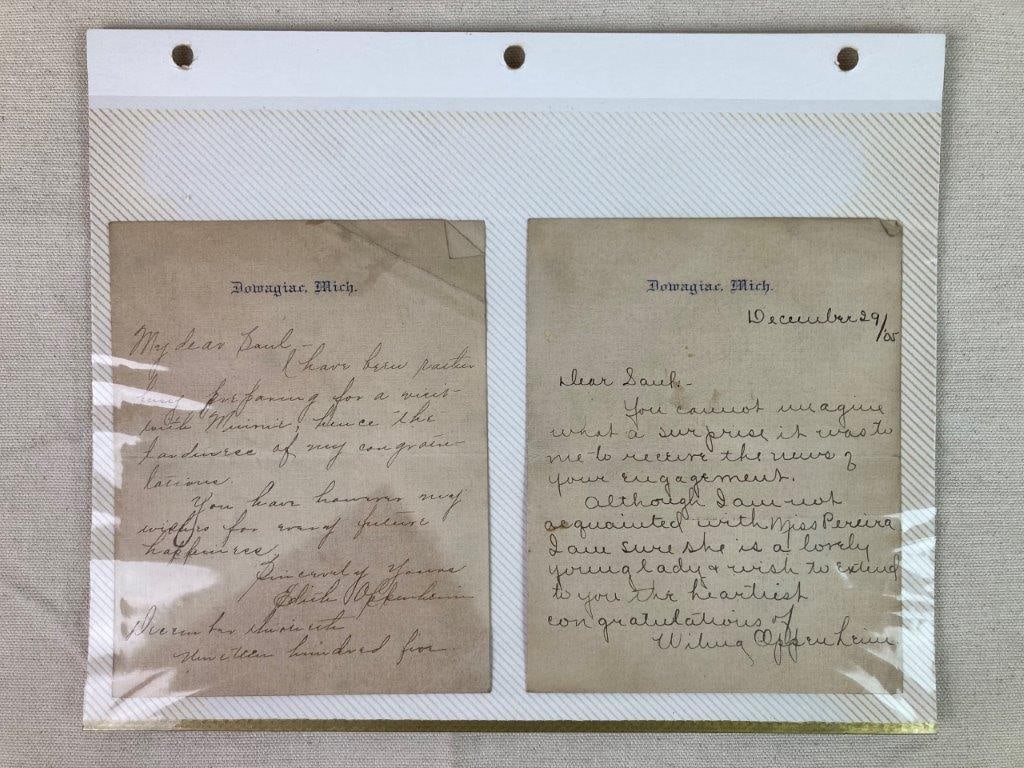 Dowagiac, Mich.
My dear Saul –
I have been rather
busy preparing for a visit
with Minnie hence the
tardiness of my congratu-
lations.
You have however my
wishes for every future
happiness.
Sincerely Yours
Edith Oppenheim
December
nineteen hundred five.
Dowagiac, Mich.
December 29/05
Dear Saul –
You cannot imagine
what a surprise it was to
me to receive the news of
your engagement.
Although I am not
acquainted with Miss Pereira
I am sure she is a lovely
young lady & wish to extend
to you the heartiest
congratulations of
Oppenheim